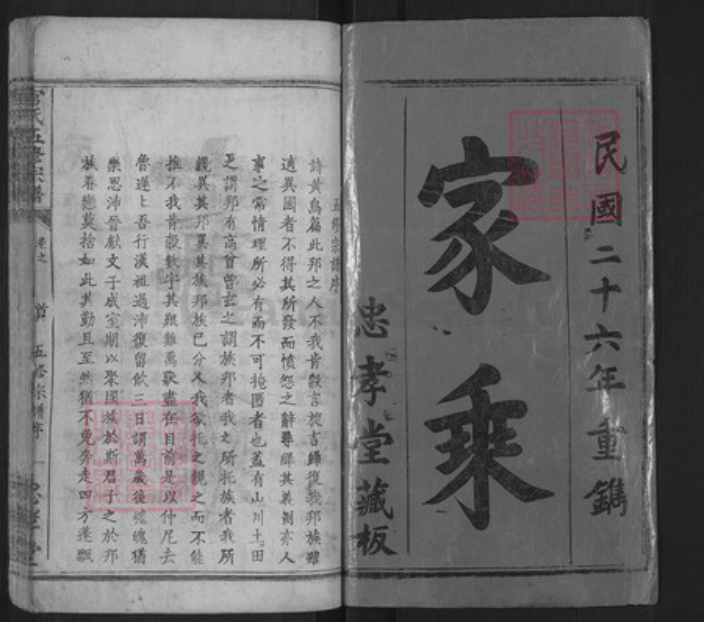 民國二十六年重鐫
家乘
忠孝堂藏板
五修宗譜序
詩黃鳥篇此邦之人不我肯穀言旋言歸復我邦族雖
適異國者不得其所發而憤怨之辭尋繹其義則亦人
事之常情理所必有而不可掩匿者也蓋有山川土田
之謂邦有高曾曾玄之謂族邦者我之所托族者我所
親異其邦異其族邦族已分人我欲托之親之而不能
推不我肯穀數字其艱難萬狀盡在目前是以仲尼去
魯遲上吾行漢祖過沛復留飲三日謂萬歲後魂魄猶
樂思沛晉獻文子成室期以聚國族於斯君子之於邦
族眷戀莫捨如此其勤且至然猶不免奔走四方蓬飄
氏五修宗譜
卷之
首
五修宗譜序
一
忠孝堂